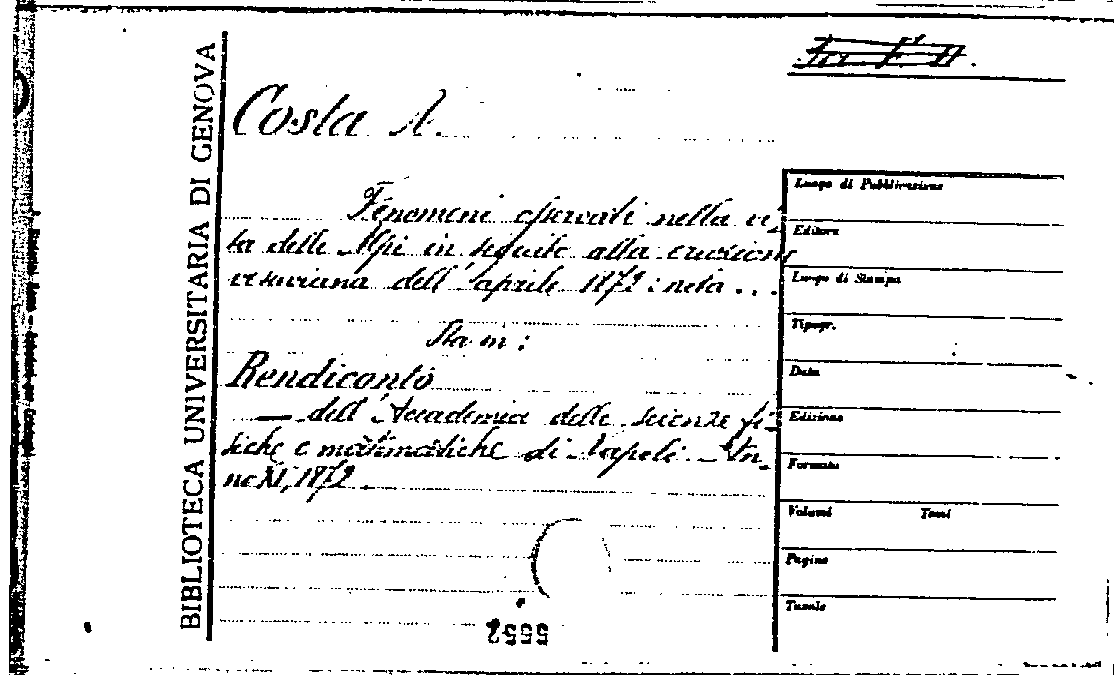 BIBLIOTECA UNIVERSITARIA DI GENOVA
Costa A.
Fenomeni osservati nella vi-
ta delle Api in seguito alla eruzione
vesuviana dell'aprile 1872: nota...
Sta in:
Rendiconto
— dell'Accademia delle scienze fi-
siche e matematiche di Napoli. An-
no XI, 1872
5552
Luogo di Pubblicazione
Editore
Luogo di Stampa
Tipogr.
Data
Edizione
Formato
Volumi Tomi
Pagine
Tavole